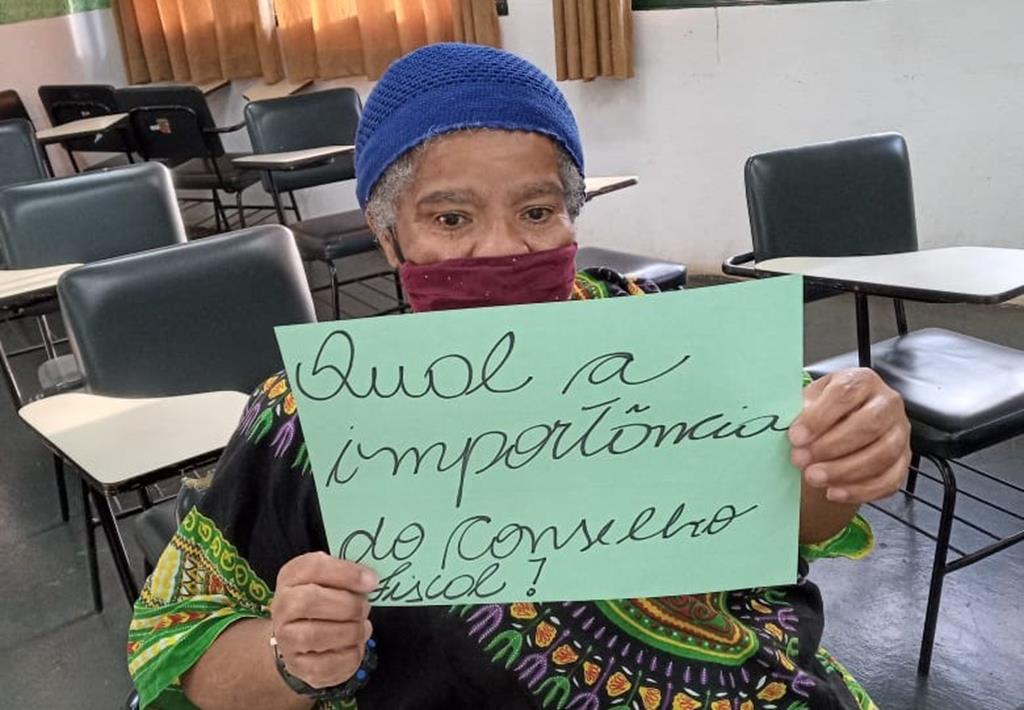 Qual a
importância
do Conselho
fiscal?